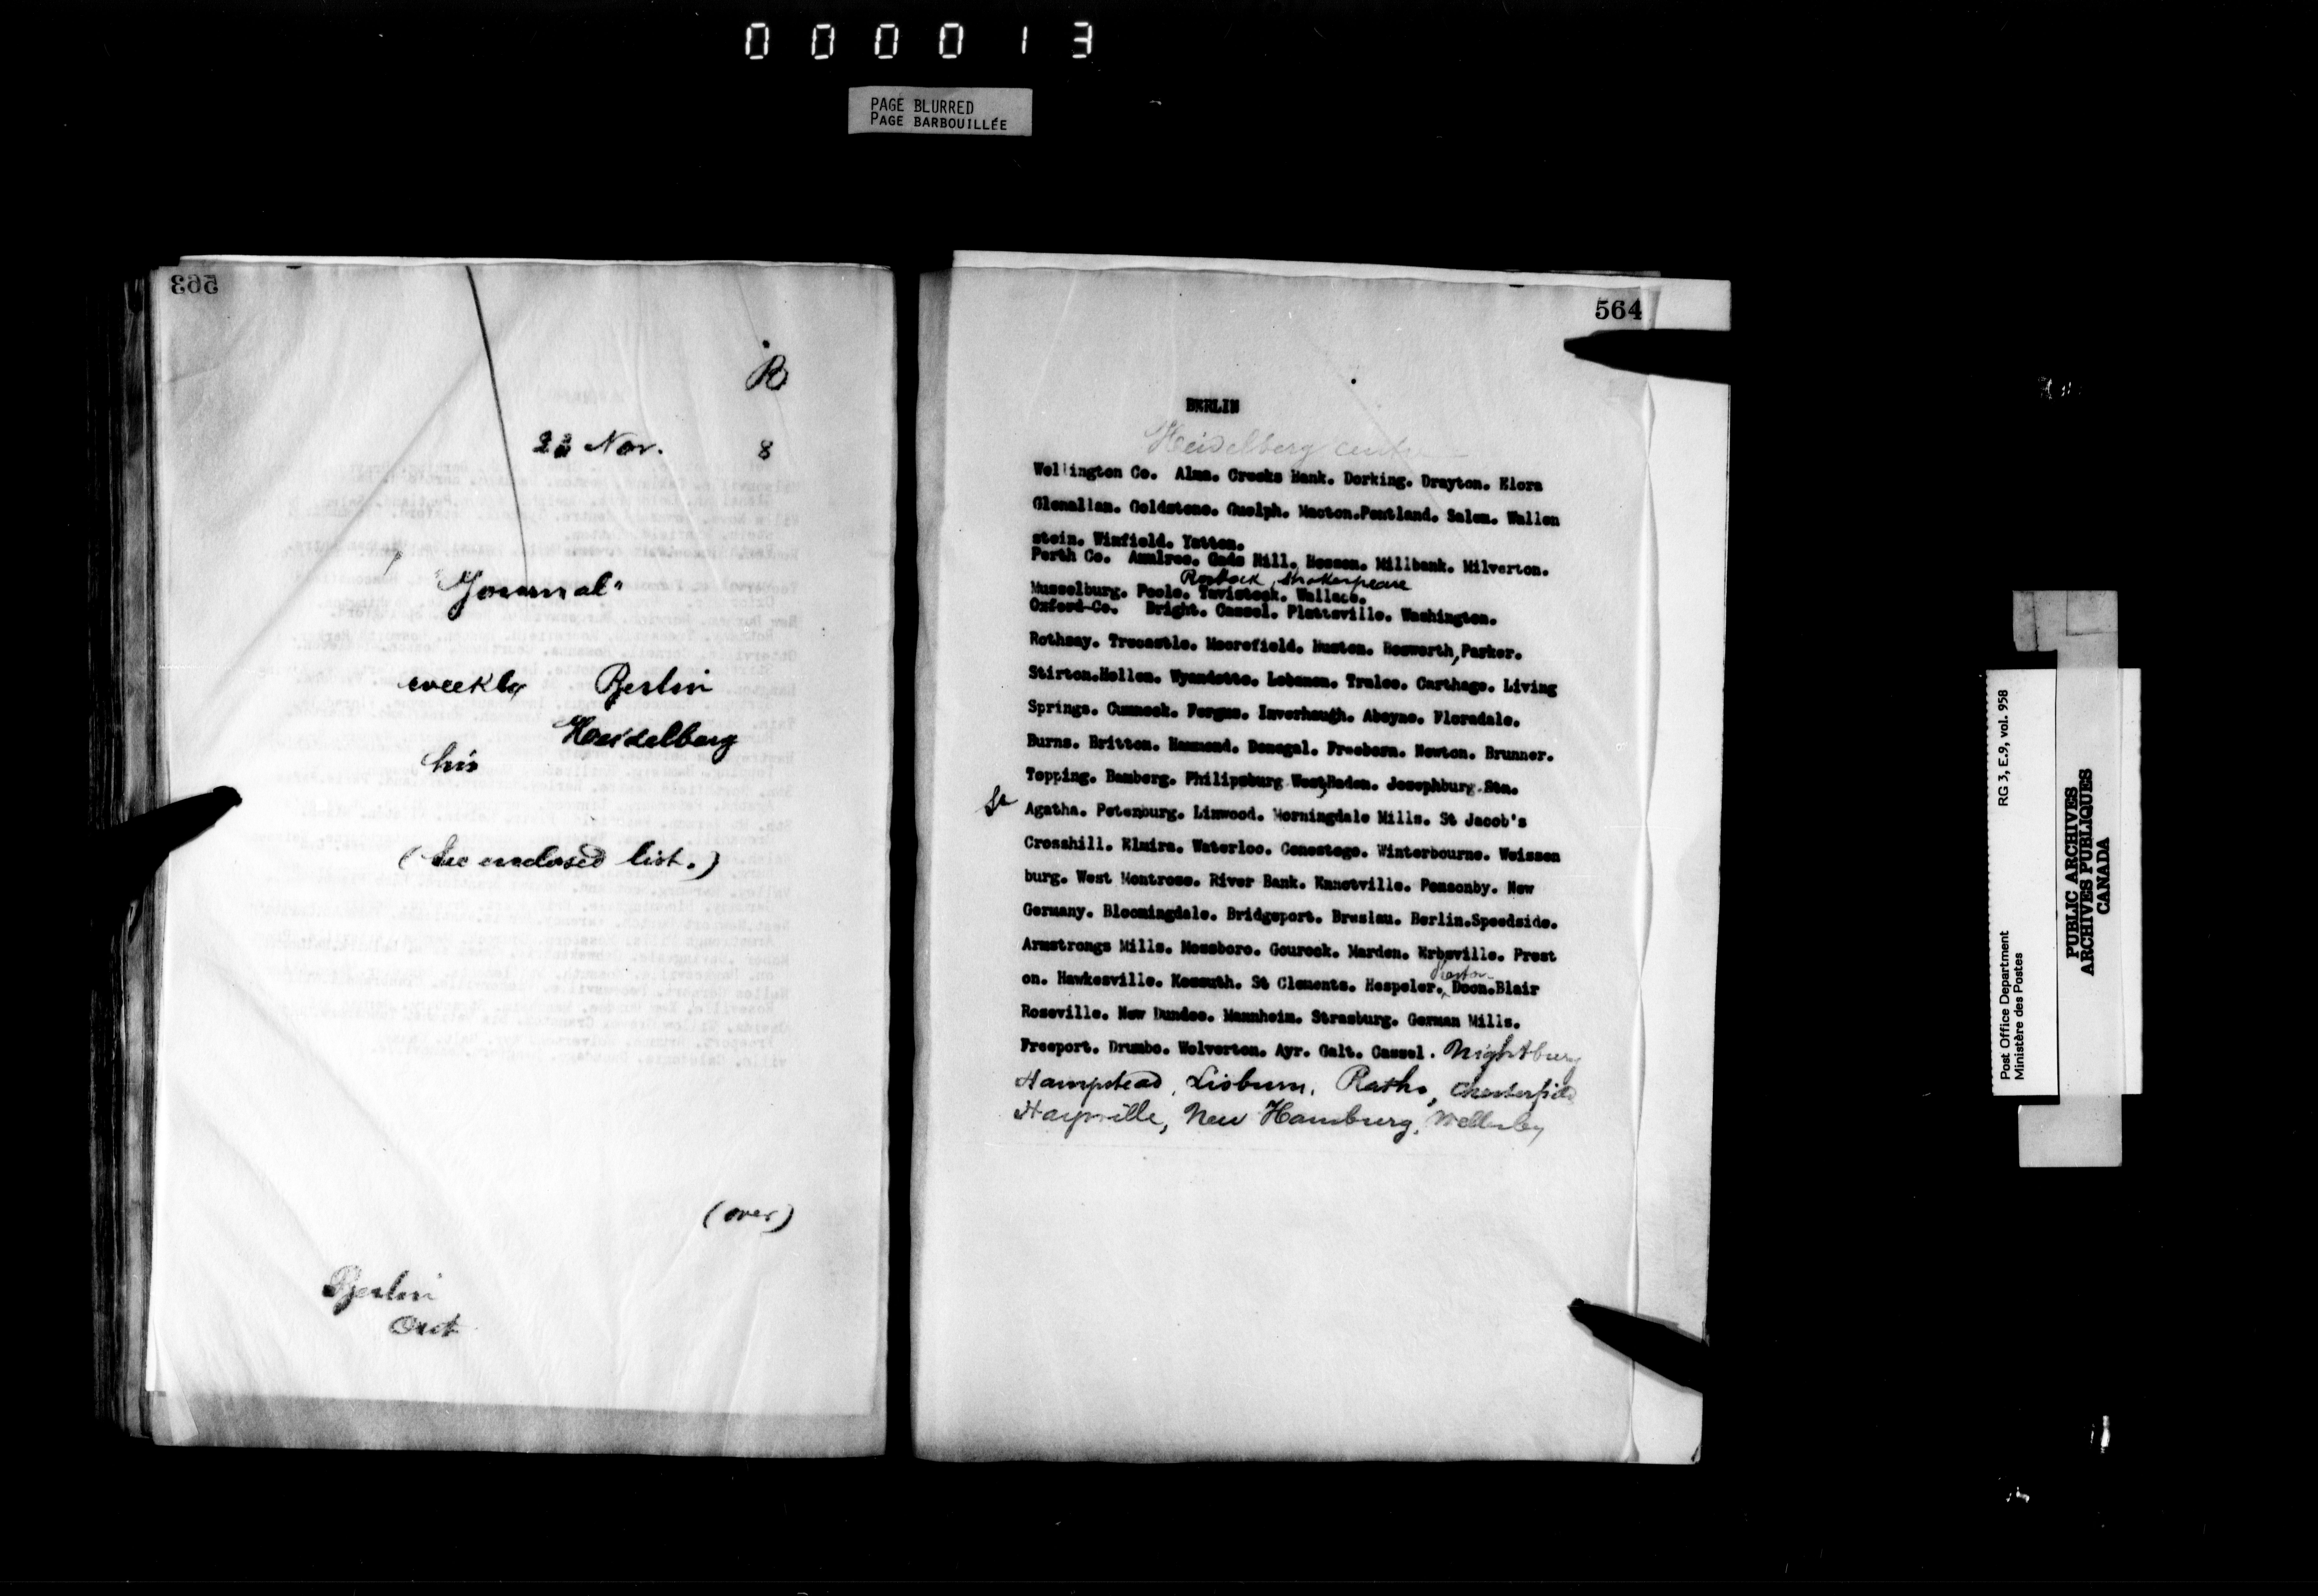 000013
PAGE BLURRED
PAGE BARBOUILLÉE
563
B
22 Nov. 8
"Journal"
weekly Berlin
Heidelberg
his
(See enclosed list.)
(over)
Berlin
Ont
564
BERLIN
Heidelberg centre
Wellington Co. Alma. Creeks Bank. Dorking. Drayton. Elora
Glenallan. Goldstone. Guelph. Macton.Pentland. Salem. Wallen
stein. Winfield. Yatton.
Perth Co. Amulree. Gads Hill. Hesson. Millbank. Milverton.
Rostock, Shakespeare
Musselburg. Poole. Tavistock. Wallace.
Oxford-Co. Bright. Cassel. Plattsville. Washington.
Rothsay. Trecastle. Moorefield. Huston. Bosworth, Parker.
Stirton.Hollen. Wyandotte. Lebanon. Tralee. Carthage. Living
Springs. Cumnock. Fergus. Inverhaugh. Aboyne. Floradale.
Burns. Britton. Hammond. Donegal. Freeborn. Newton. Brunner.
Topping. Bamberg. Philipsburg West, Baden. Josephburg. Stn.
St Agatha. Petersburg. Linwood. Morningdale Mills. St Jacob's
Crosshill. Elmira. Waterloo. Conestogo. Winterbourne. Weissen
burg. West Montrose. River Bank. Ennotville. Ponsonby. New
Germany. Bloomingdale. Bridgeport. Breslau. Berlin.Speedside.
Armstrongs Mills. Mossboro. Gourock. Marden. Erbsville. Prest
on. Hawkesville. Kossuth. St Clements. Hespeler. Preston Doon.Blair
Roseville. New Dundee. Mannheim. Strasburg. German Mills.
Freeport. Drumbo. Wolverton. Ayr. Galt. Cassel. Nightburg
Hampstead, Lisburn, Raths, Chesterfield
Haysville, New Hamburg, Wellesley
Post Office Department RG 3, E.9, vol. 958
Ministère des Postes
PUBLIC ARCHIVES
ARCHIVES PUBLIQUES
CANADA